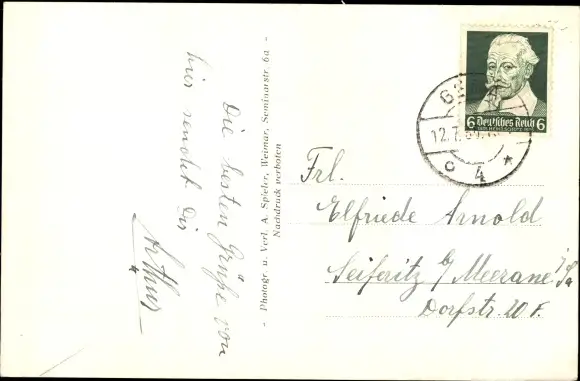 Die besten Grüße von
hier sendet Dir
Arthur
- Photogr. u. Verl. A. Spieler, Weimar, Seminarstr. 6a -
Nachdruck verboten
6 Deutsches Reich 6
12.7.
c 4 *
Frl.
Elfriede Arnold
Seiferitz b/ Meerane i/Sa
Dorfstr. 20 F.